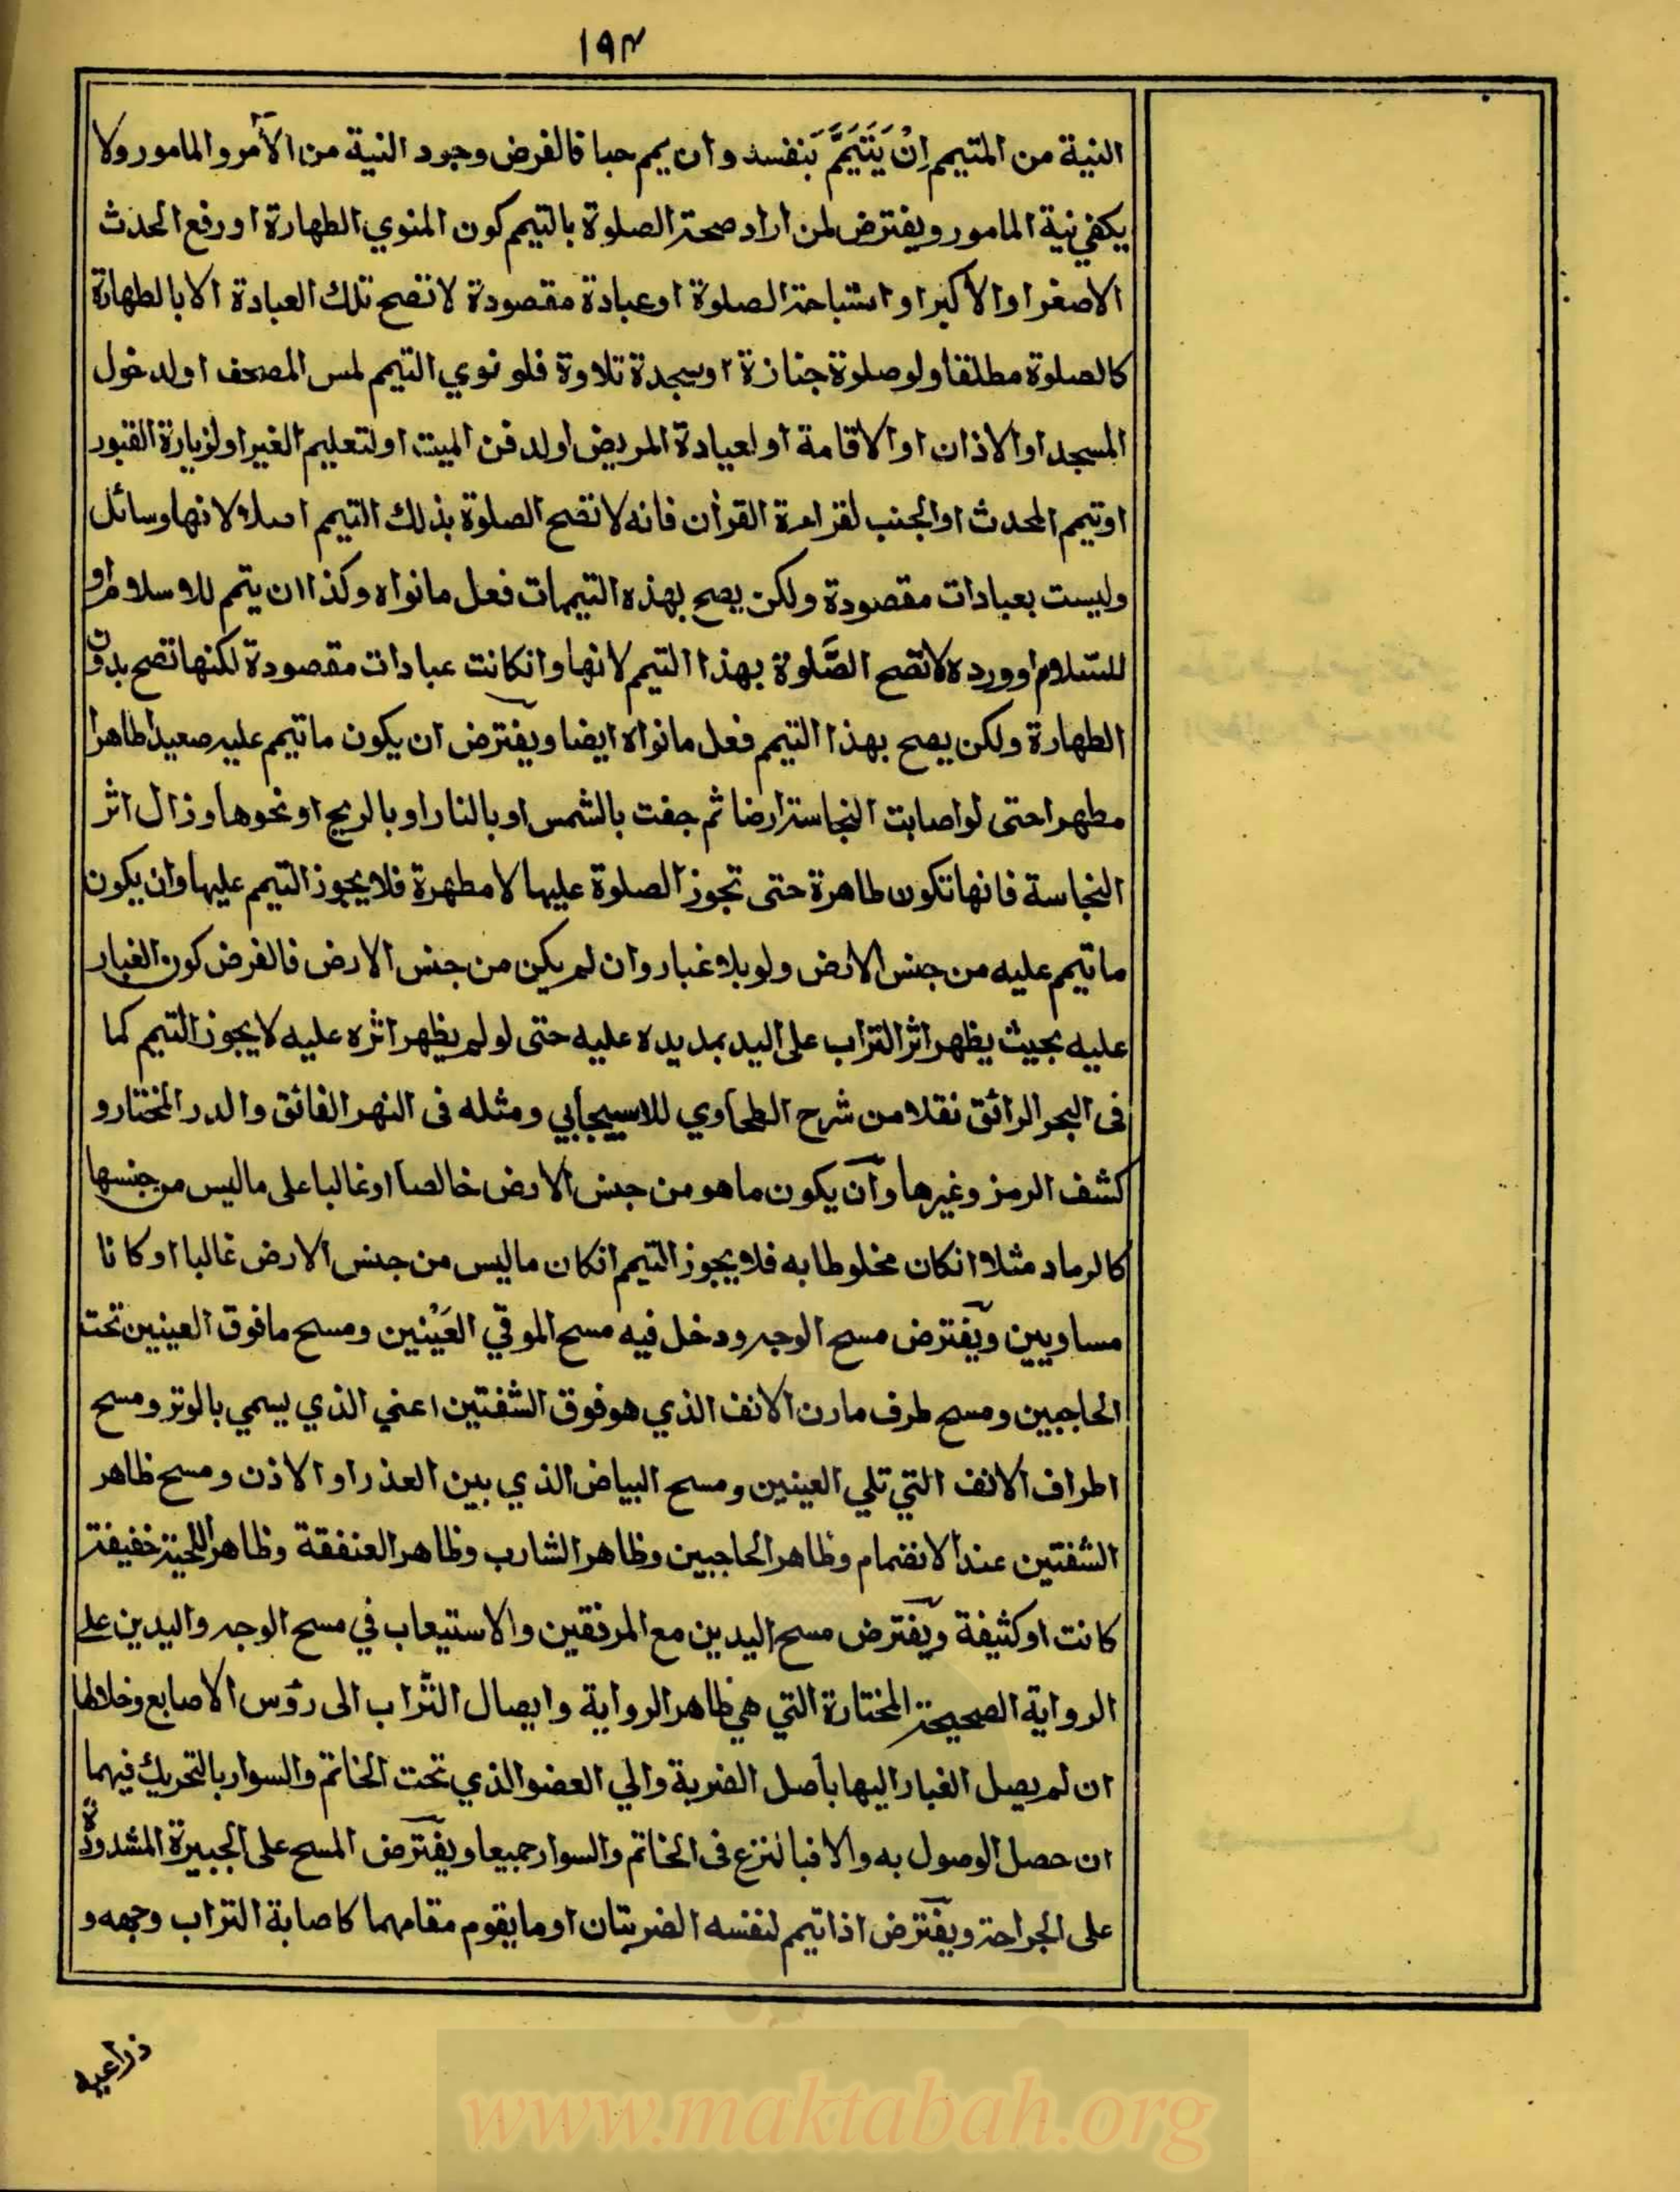 ١٩٣
النية من المتيمم اِنْ يَتَيَمَّمَ بَنفسه وان يمم حبا فالفرض وجود النية من الآمر والمامور ولا
يكفي نية المامور ويفترض لمن اراد صحة الصلوة بالتيمم كون المنوي الطهارة او رفع الحدث
الاصغر او الاكبر او استباحة الصلوة او عبادة مقصودة لا تصح تلك العبادة الا بالطهارة
كالصلوة مطلقا ولو صلوة جنازة او سجدة تلاوة فلو نوي التيمم لمس المصحف او لدخول
المسجد او الاذان او الاقامة او لعيادة المريض او لدفن الميت او لتعليم الغير او لزيارة القبور
او تيمم المحدث او الجنب لقراءة القرأن فانه لا تصح الصلوة بذلك التيمم اصلا لانها وسائل
وليست بعبادات مقصودة ولكن يصح بهذه التيممات فعل مانواه وكذا ان يتمم للاسلام او
للسّلام او ورده لا تصح الصّلوة بهذا التيمم لانها وانكانت عبادات مقصودة لكنها تصح بدون
الطهارة ولكن يصح بهذا التيمم فعل مانواه ايضا ويفترض ان يكون ماتيمم عليه صعيدا طاهرا
مطهرا حتى لو اصابت النجاسة ارضا ثم جفت بالشمس او بالنار او بالريح او نحوها وزال اثر
النجاسة فانها تكون طاهرة حتى تجوز الصلوة عليها لا مطهرة فلا يجوز التيمم عليها وان يكون
ماتيمم عليه من جنس الارض ولو بلا غبار وان لم يكن من جنس الارض فالفرض كون الغبار
عليه بحيث يظهر اثر التراب على اليد بمد يده عليه حتى لو لم يظهر اثره عليه لا يجوز التيمم كما
فى البحر الرائق نقلا من شرح الطحاوي للاسبيجابي ومثله فى النهر الفائق والدر المختار و
كشف الرمز وغيرها وآن يكون ماهو من جنس الارض خالصا او غالبا على ماليس من جنسها
كالرماد مثلا انكان مخلوطا به فلا يجوز التيمم انكان ماليس من جنس الارض غالبا او كانا
مساويين ويفترض مسح الوجه ودخل فيه مسح الموقي العَيْنين ومسح مافوق العينين تحت
الحاجبين ومسح طرف مارن الانف الذي هو فوق الشفتين اعني الذي يسمي بالوتر ومسح
اطراف الانف التي تلي العينين ومسح البياض الذي بين العذار او الاذن ومسح ظاهر
الشفتين عند الانضمام وظاهر الحاجبين وظاهر الشارب وظاهر العنفقة وظاهر اللحية خفيفة
كانت او كثيفة ويفترض مسح اليدين مع المرفقين والاستيعاب في مسح الوجه واليدين على
الرواية الصحيحة المختارة التي هي ظاهر الرواية وايصال التّراب الى رؤس الاصابع وخلالها
ان لم يصل الغبار اليها بأصل الضربة والي العضو الذي تحت الخاتم والسوار بالتحريك فيهما
ان حصل الوصول به والا فبالنزع فى الخاتم والسوار جميعا ويفترض المسح على الجبيرة المشدودة
على الجراحة ويفترض اذا تيمم لنفسه الضربتان او ما يقوم مقامهما كاصابة التراب وجهه و
ذراعيه
www.maktabah.org